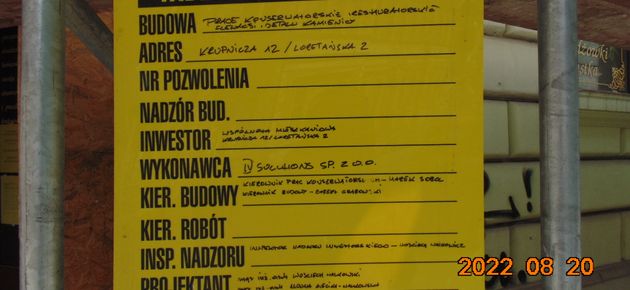 BUDOWA PRACE KONSERWATORSKIE I RESTAURATORSKIE
ELEWACJI I DETALU KAMIENICY
ADRES KRUPNICZA 12 / LORETAŃSKA 2
NR POZWOLENIA
NADZÓR BUD.
INWESTOR WSPÓLNOTA MIESZKANIOWA
KRUPNICZA 12/LORETAŃSKA 2
WYKONAWCA SOLUTIONS SP. Z O.O.
KIER. BUDOWY KIEROWNIK PRAC KONSERWATORSKICH - MAREK SOBOL
KIEROWNIK BUDOWY -
KIER. ROBÓT
INSP. NADZORU INSPEKTOR NADZORU INWESTORSKIEGO -
PROJEKTANT MGR INŻ. ARCH. WOJCIECH
MGR INŻ. ARCH.
2022 08 20